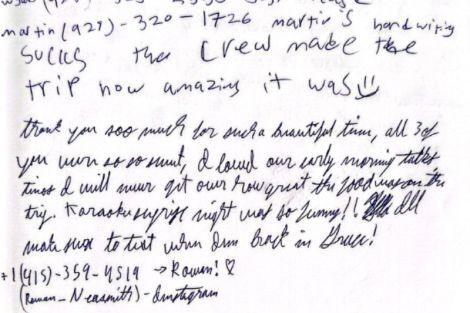 martin (929)-320-1726 martin's handwriting
sucks the crew make the
trip how amazing it was
thank you soo much for such a beautiful time, all 3 of
you were so so sweet, I loved our early morning talks
I will never get over how great the food was on the
trip. Karaoke night was so funny!! Ill
make sure to text when Im back in
+1 (415)-359-4519 → Rowan! ♡
(Rowan_Neasmith) - Instagram